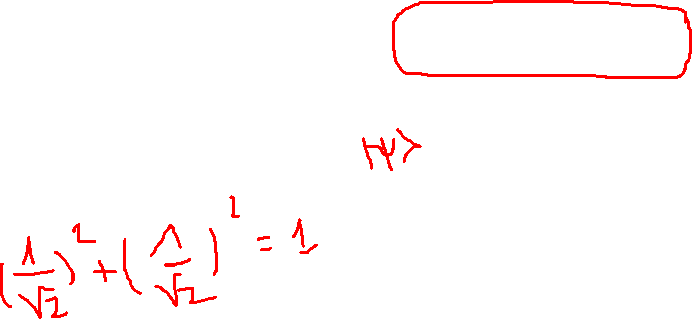 |ψ>
(1/√2)² + (1/√2)² = 1